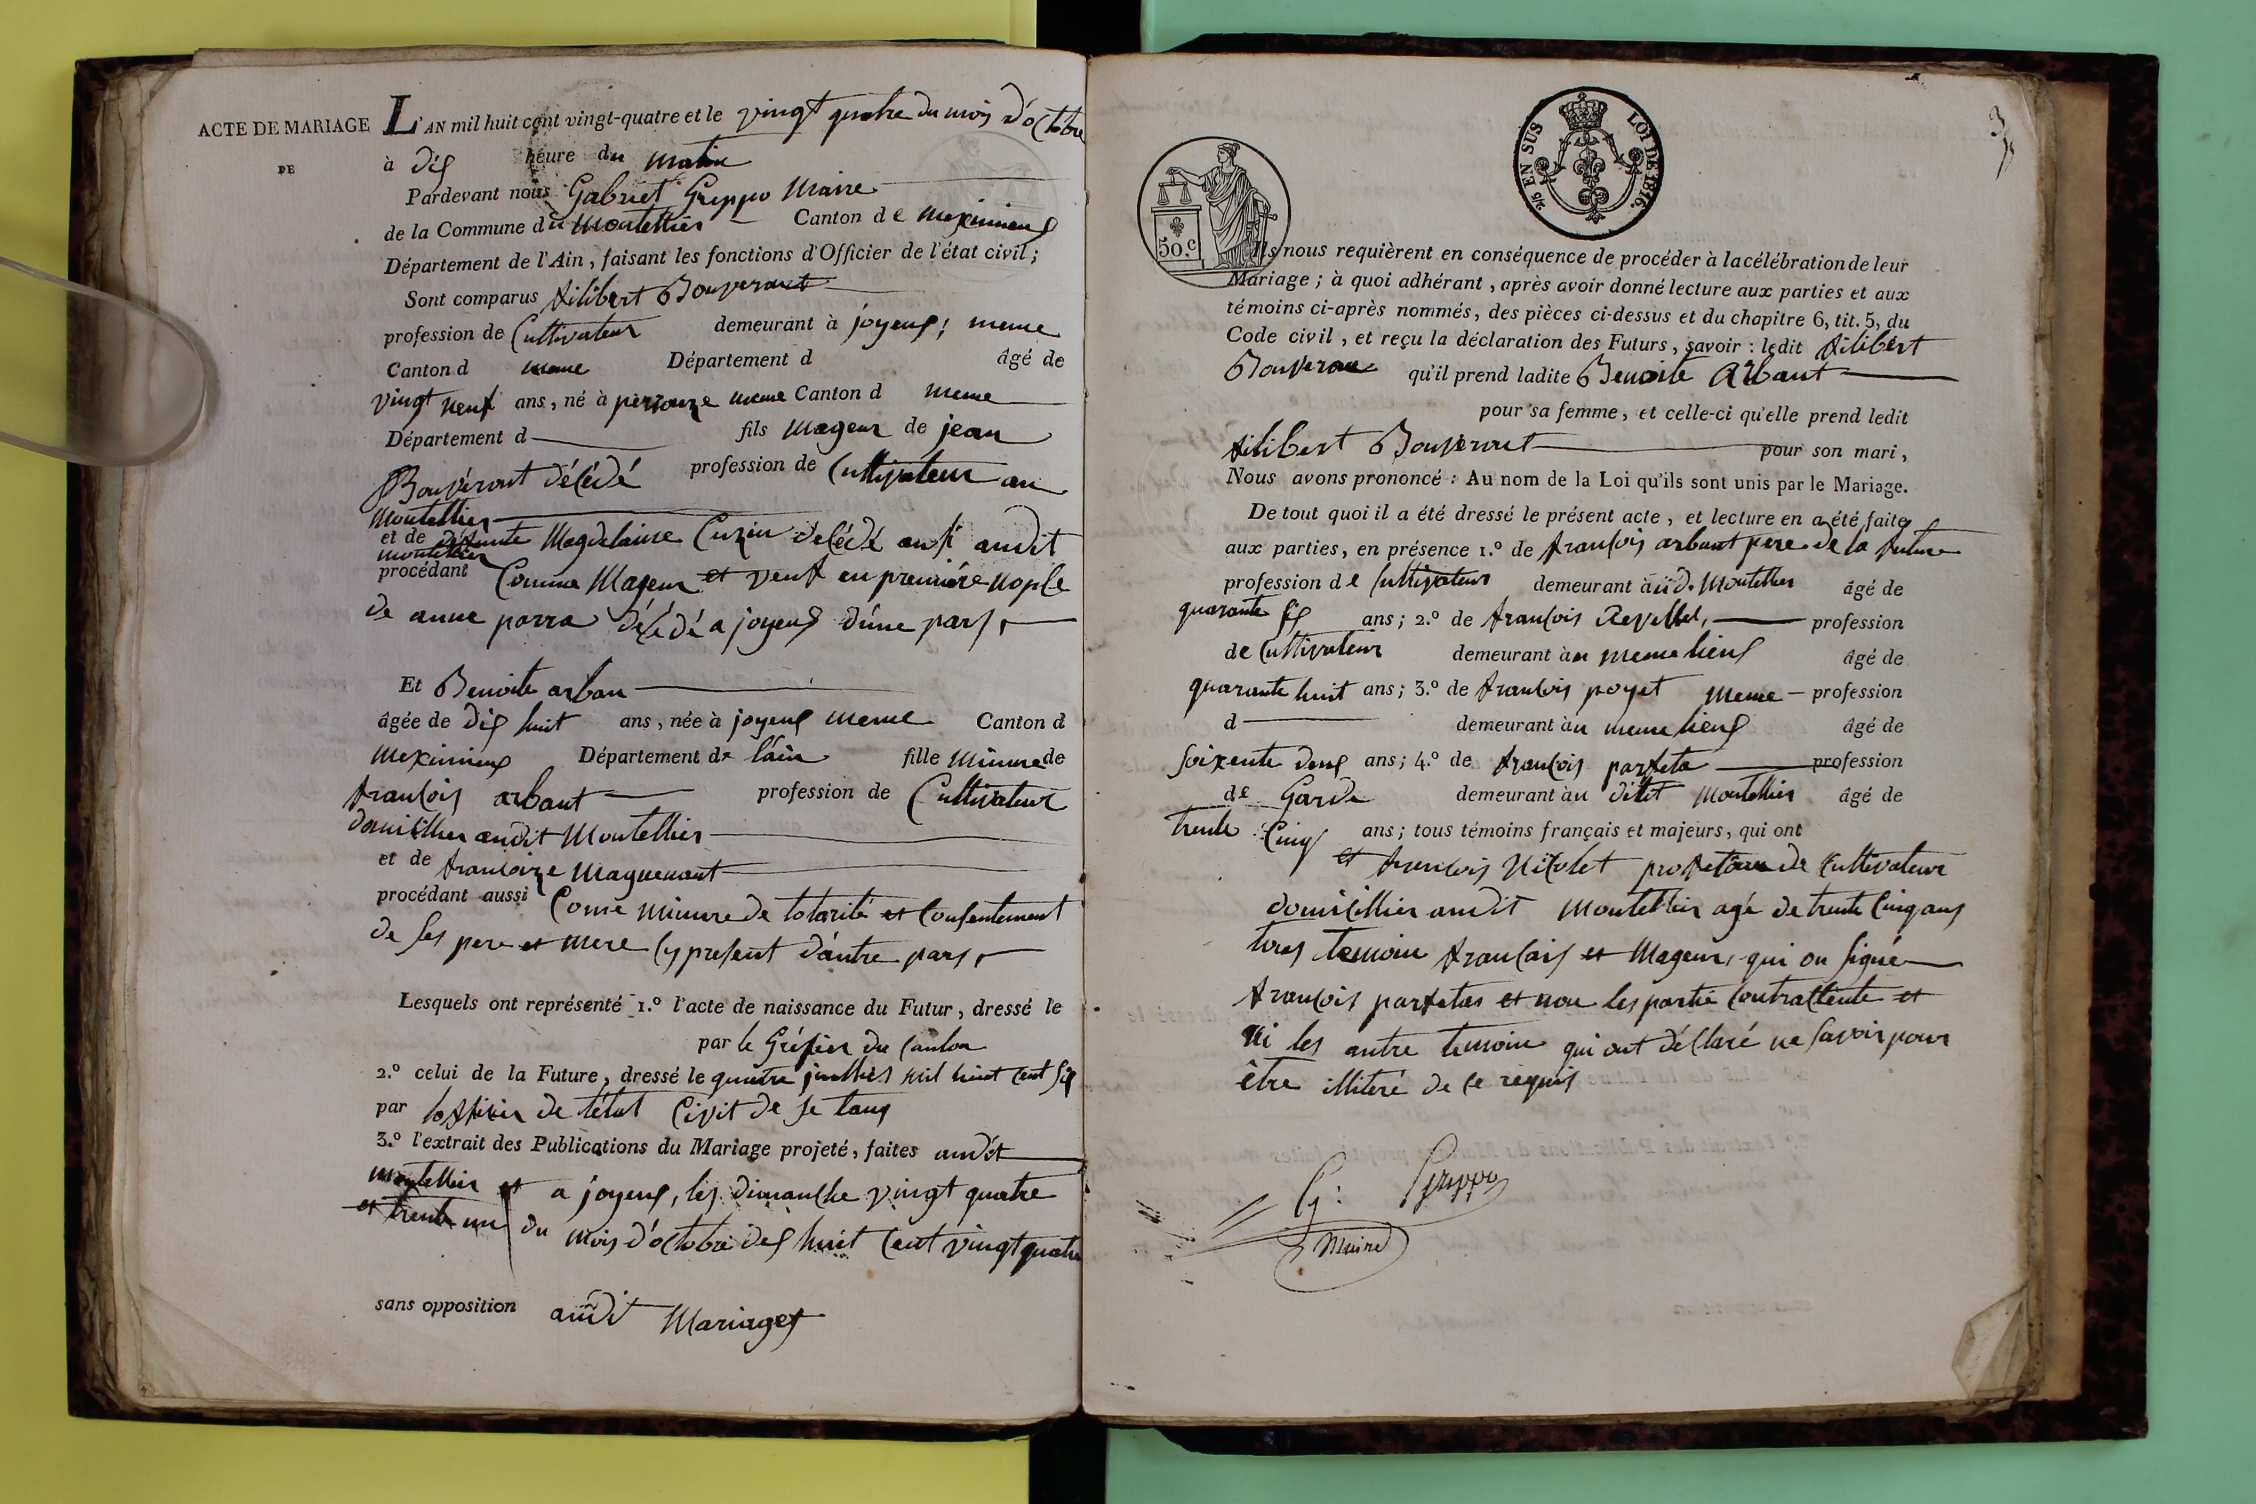 ACTE DE MARIAGE
DE
L'AN mil huit cent vingt-quatre et le vingt quatre du mois d'octobre
à dix heure du matin
Pardevant nous Gabriel Greppo Maire
de la Commune du Montellier Canton de meximieux
Département de l'Ain, faisant les fonctions d'Officier de l'état civil;
Sont comparus filibert Bouverant
profession de Cultivateur demeurant à joyeux; meme
Canton d meme Département d âgé de
vingt neuf ans, né à perzouze meme Canton d meme
Département d fils mageur de jean
Bouverant décédé profession de Cultivateur au
montellier
et de défunte Magdelaine Cuzin décédé ausi audit
montellier
procédant Comme Mageur et veuf en première nopse
de anne parra décédé a joyeux d'une part
Et Benoite arban
âgée de dix huit ans, née à joyeux meme Canton d
meximieux Département de lain fille minure de
francois arbant profession de Cultivateur
domicillier audit Montellier
et de francoize Maguenant
procédant aussi Come minure de lotorité et Consentement
de ses pere et mere cy present d'autre part
Lesquels ont représenté 1.º l'acte de naissance du Futur, dressé le
par le Gréfier du Canton
2.º celui de la Future, dressé le quatre juilliet mil huit cent six
par lofficier de l'état Civit de se tems
3.º l'extrait des Publications du Mariage projeté, faites audit
montellier et a joyeux, les dimanche vingt quatre
et trente un du mois d'octobre dix huit cent vingt quatre
sans opposition audit Mariages
5/10 EN SUS LOI DE 1816.
50.c
Ils nous requièrent en conséquence de procéder à la célébration de leur
Mariage; à quoi adhérant, après avoir donné lecture aux parties et aux
témoins ci-après nommés, des pièces ci-dessus et du chapitre 6, tit. 5, du
Code civil, et reçu la déclaration des Futurs, savoir: ledit filibert
Bouveran qu'il prend ladite Benoite Arbant
pour sa femme, et celle-ci qu'elle prend ledit
filibert Bouverant pour son mari,
Nous avons prononcé: Au nom de la Loi qu'ils sont unis par le Mariage.
De tout quoi il a été dressé le présent acte, et lecture en a été faite
aux parties, en présence 1.º de francois arbant pere de la future
profession de Cultivateur demeurant à aud. Montellier âgé de
quarante six ans; 2.º de francois Revellet, profession
de Cultivateur demeurant au meme lieux âgé de
quarante huit ans; 3.º de francois poyet meme profession
d demeurant au meme lieux âgé de
soixente deux ans; 4.º de francois parfeta profession
de Garde demeurant au ditit Montellier âgé de
trente Cinq ans; tous témoins français et majeurs, qui ont
et francois Nicolet de Cultivateur
domicillier audit Montellier agé de trente Cinq ans
tous temoin francais et Mageur, qui on signé
francois parfetas et non les partie Contractente et
ni les autre temoin qui ont déclaré ne savoir pour
être illiteré de ce requis
G: Greppo
Maire